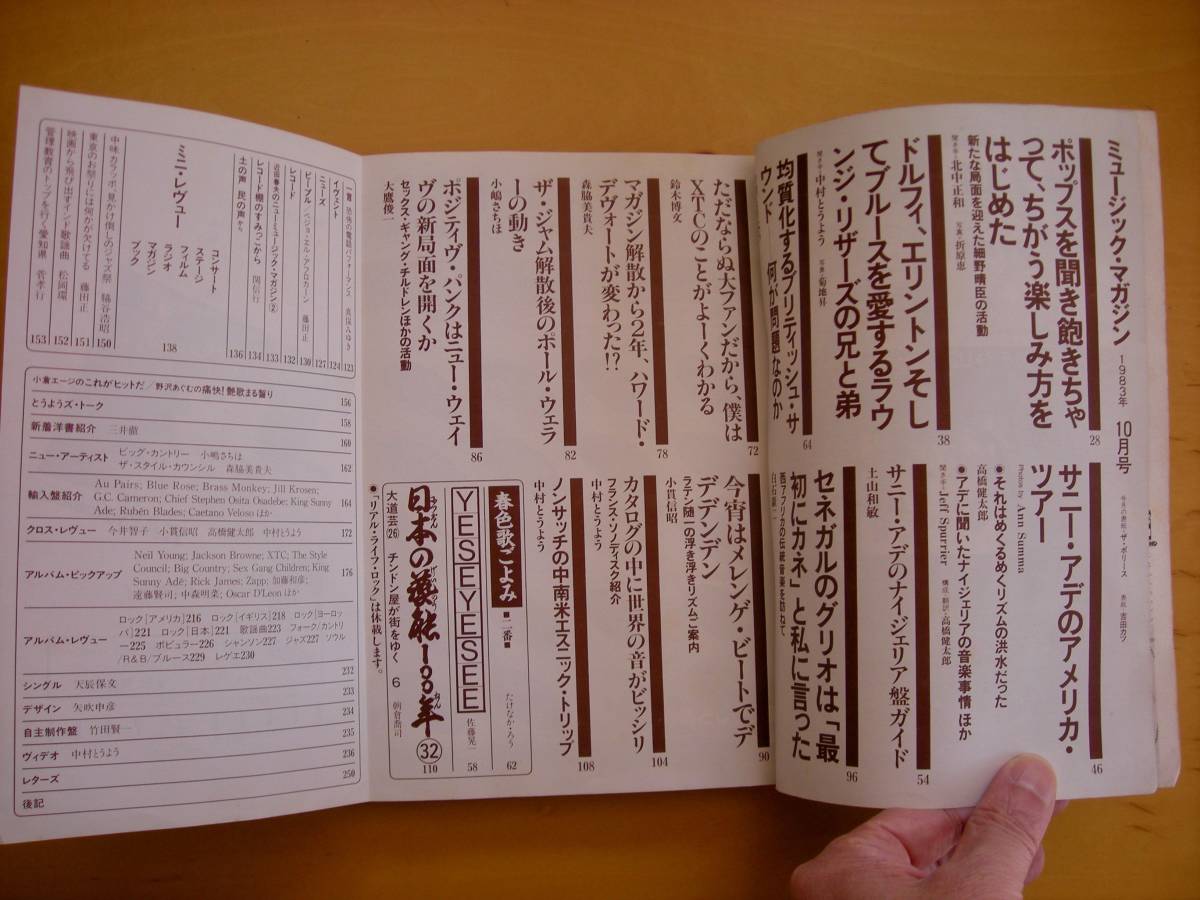 ミュージック・マガジン 1983年 10月号
今月の表紙・ザ・ポリース 表紙・吉田カツ
ポップスを聞き飽きちゃ
って、ちがう楽しみ方を
はじめた
新たな局面を迎えた細野晴臣の活動
聞き手・北中正和 写真・折原恵
28
ドルフィ、エリントンそし
てブルースを愛するラウ
ンジ・リザーズの兄と弟
聞き手・中村とうよう 写真・菊地昇
38
均質化するブリティッシュ・サ
ウンド 何が問題なのか
64
サニー・アデのアメリカ・
ツアー
Photos by Ann Summa
●それはめくるめくリズムの洪水だった
高橋健太郎
●アデに聞いたナイジェリアの音楽事情 ほか
聞き手・Jeff Spurrier 構成・翻訳・高橋健太郎
46
サニー・アデのナイジェリア盤ガイド
土山和敏
54
セネガルのグリオは「最
初にカネ」と私に言った
西アフリカの伝統音楽を訪ねて
96
ただならぬ大ファンだから、僕は
XTCのことがよーくわかる
鈴木博文
72
マガジン解散から2年、ハワード・
デヴォートが変わった!?
森脇美貴夫
78
ザ・ジャム解散後のポール・ウェラ
ーの動き
小嶋さちほ
82
ポジティヴ・パンクはニュー・ウェイ
ヴの新局面を開くか
セックス・ギャング・チルドレンほかの活動
大鷹俊一
86
今宵はメレンゲ・ビートでデ
デデンデン
ラテン随一の浮き浮きリズムご案内
小貫信昭
90
カタログの中に世界の音がビッシリ
フランス・ソノディスク紹介
中村とうよう
104
ノンサッチの中南米エスニック・トリップ
中村とうよう
108
春色歌ごよみ ■二番■ たけなか・ろう 62
YESEYESEE 佐藤晃一 58
日本の藝能一〇〇年 ㉜
大道芸(26) チンドン屋が街をゆく 6 朝倉喬司
110
●「リアル・ライフ・ロック」は休載します。
123
イヴェント 124
ニューズ 127
ピープル ベンジョ・エル・アフロカーン 藤田正 130
レコード 132
近田春夫のニューミュージック・マガジン② 133
レコード棚のすみっこから 関信行 134
土の声 民の声から 136
ミニ・レヴュー
コンサート
ステージ
フィルム
ラジオ
マガジン
ブック
138
中味カラッポ、見かけ倒しのジャズ祭 鍵谷浩昭 150
東京のお祭りには何かが欠けてる 藤田正 151
映画から飛び出すインド歌謡曲 松岡環 152
管理教育のトップを行く愛知県 菅孝行 153
小倉エージのこれがヒットだ/野沢あぐむの痛快!艶歌まる齧り 156
とうようズ・トーク 158
新着洋書紹介 三井徹 160
ニュー・アーティスト ビッグ・カントリー 小嶋さちほ
ザ・スタイル・カウンシル 森脇美貴夫 162
輸入盤紹介 Au Pairs; Blue Rose; Brass Monkey; Jill Krosen;
G.C. Cameron; Chief Stephen Osita Osadebe; King Sunny
Ade; Rubén Blades; Caetano Velosoほか 164
クロス・レヴュー 今井智子 小貫信昭 高橋健太郎 中村とうよう 172
アルバム・ピックアップ Neil Young; Jackson Browne; XTC; The Style
Council; Big Country; Sex Gang Children; King
Sunny Adé; Rick James; Zapp; 加藤和彦;
遠藤賢司; 中森明菜; Oscar D'Leonほか 176
アルバム・レヴュー ロック[アメリカ]216 ロック[イギリス]218 ロック[ヨーロッ
パ]221 ロック[日本]221 歌謡曲223 フォーク/カントリ
ー225 ポピュラー226 シャンソン227 ジャズ227 ソウル
/R&B/ブルース229 レゲエ230
232
シングル 天辰保文 233
デザイン 矢吹申彦 234
自主制作盤 竹田賢一 235
ヴィデオ 中村とうよう 236
レターズ 250
後記